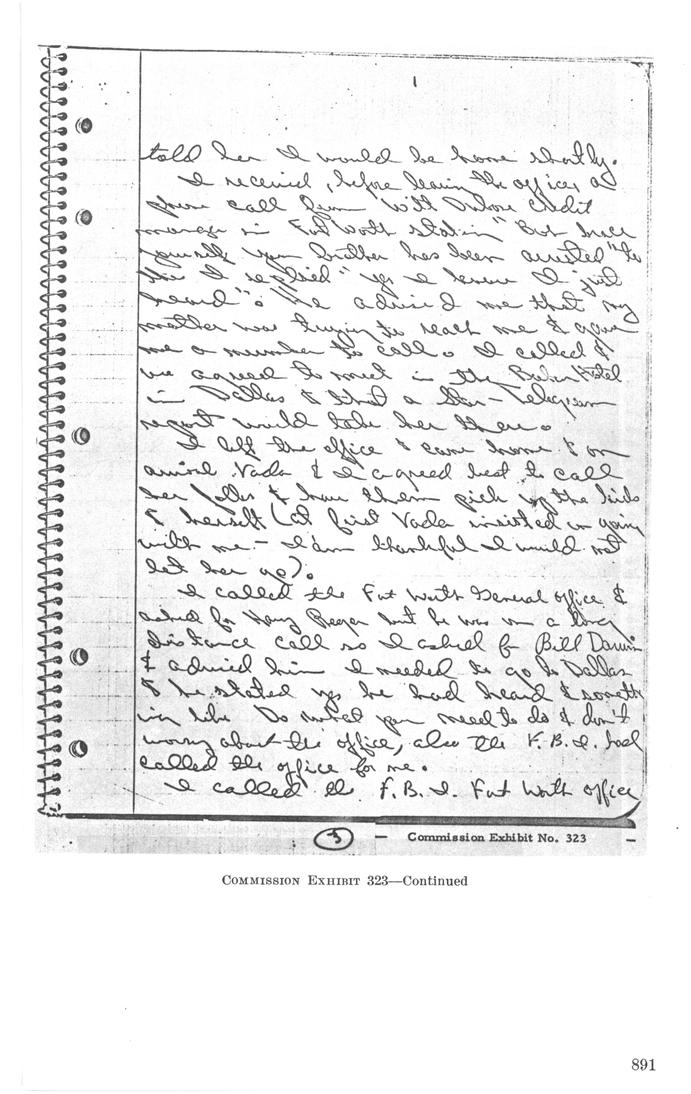 1
told her I would be home shortly.
I received, before leaving the office, a
phone call from credit
manager in Fort Worth stating " Bob brace
yourself your brother has been arrested " to
this I replied " yes I know I just
heard ". He advised me that my
mother was trying to reach me & gave
me a number to call. I called &
we agreed to meet in the Baker Hotel
in Dallas & that a Star-Telegram
report would take her there.
I left the office & came home & on
arrival Vada & I agreed best to call
her folks & have them pick up the kids
& herself (at first Vada insisted on going
with me - I am thankful I would not
let her go).
I called the Fort Worth General office &
asked for but he was on a long
distance call so I asked for Bill
& advised him I needed to go to Dallas
& he stated yes he had heard & someth
ing like Do what you need to do & don't
worry about the office, also the F.B.I. had
called the office for me.
I called the F.B.I. Fort Worth office
3 - Commission Exhibit No. 323 -
COMMISSION EXHIBIT 323—Continued
891